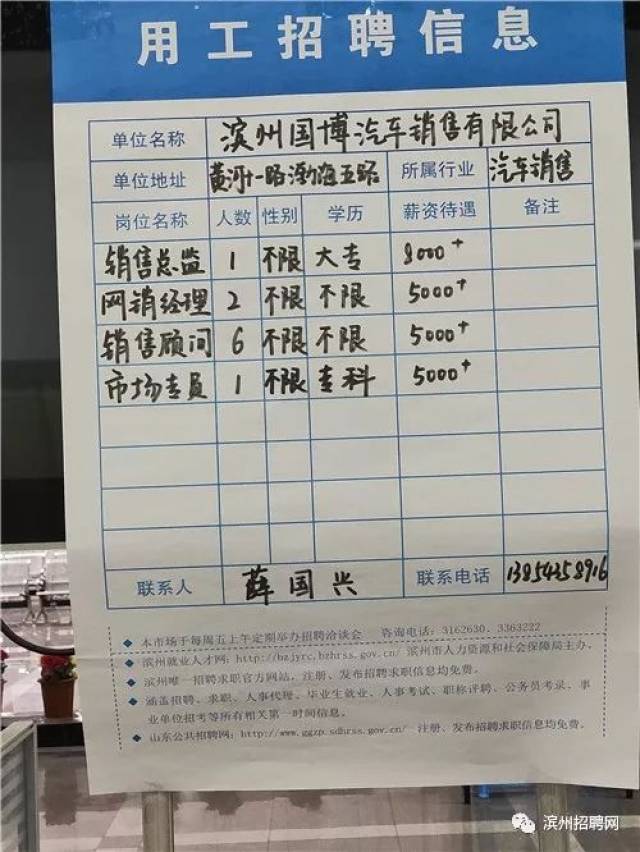 用工招聘信息
单位名称 滨州国博汽车销售有限公司
单位地址 黄河十一路渤海五路 所属行业 汽车销售
岗位名称 人数 性别 学历 薪资待遇 备注
销售总监 1 不限 大专 8000+
网销经理 2 不限 不限 5000+
销售顾问 6 不限 不限 5000+
市场专员 1 不限 专科 5000+
联系人 薛国兴 联系电话 13854358916
◆ 本市场于每周五上午定期举办招聘洽谈会 咨询电话：3162630、3363222
◆ 滨州就业人才网：http://bzjyrc.bzhrss.gov.cn/ 滨州市人力资源和社会保障局主办，
◆ 滨州唯一招聘求职官方网站，注册、发布招聘求职信息均免费。
◆ 涵盖招聘、求职、人事代理、毕业生就业、人事考试、职称评聘、公务员考录、事
业单位招考等所有相关第一时间信息。
◆ 山东公共招聘网：http://www.ggzp.sdhrss.gov.cn/ 注册、发布招聘求职信息均免费。
滨州招聘网